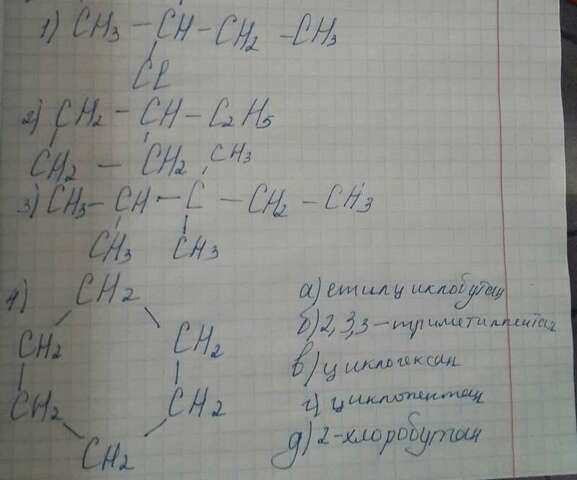 1) CH3 - CH - CH2 - CH3
Cl
2) CH2 - CH - C2H5
CH2 - CH2 CH3
3) CH3 - CH - C - CH2 - CH3
CH3 CH3
4) CH2
CH2 CH2
CH2 CH2
CH2
а) етилциклобутан
б) 2,3,3-триметилпентан
в) циклогексан
г) циклопентан
д) 2-хлоробутан